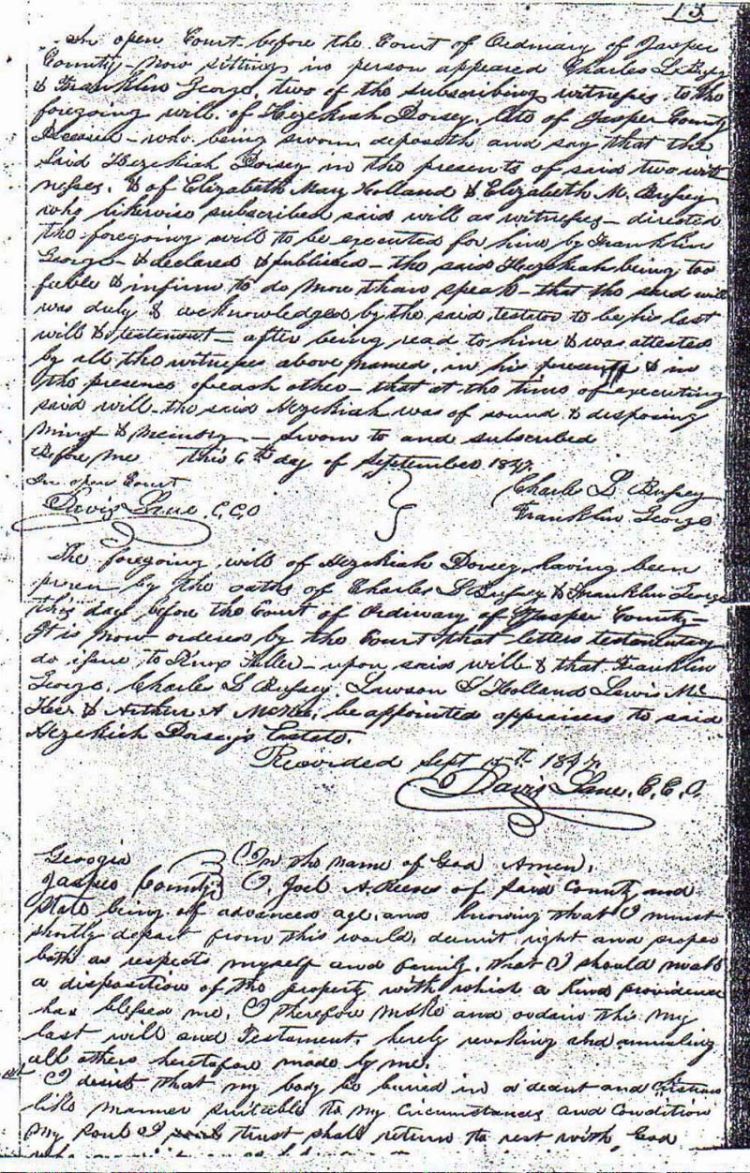 13
In open Court before the Court of Ordinary of Jasper
County – now sitting in person appeared Charles L Bussey
& Franklin George, two of the subscribing witnesses to the
foregoing will of Hezekiah Dorsey, late of Jasper County
Deceased – who being sworn deposeth and say that the
Said Hezekiah Dorsey in the presents of said two wit
nesses, & of Elizabeth Mary Holland & Elizabeth M. Bussey
who likewise subscribed said will as witnesses – directed
the foregoing will to be executed for him by Franklin
George – & declared & published – the said Hezekiah being too
feeble & infirm to do more than speak – that the said will
was duly & acknowledged by the said testator to be his last
will & testament – after being read to him & was attested
by all the witnesses above named, in his presents & in
the presence of each other – that at the time of executing
said will – the said Hezekiah was of sound & disposing
mind & memory – Sworn to and subscribed
Before me this 6th day of September 1847.
In open Court
Charles L Bussey
Davis Lane, C.C.O
Franklin George
The foregoing will of Hezekiah Dorsey having been
proven by the oaths of Charles L Bussey & Franklin George
this day before the Court of Ordinary of Jasper County –
It is now ordered by the Court that letters testamentary
do issue to Knox – upon said will & that Franklin
George, Charles L Bussey, Lawson S Holland Lewis Mc
& Arthur A be appointed appraisers to said
Hezekiah Dorsey's Estate.
Recorded Sept 1847
Davis Lane, C.C.O.
Georgia In the name of God Amen,
Jasper County I, Joel A Reeves of said County and
State being of advanced age, and knowing that I must
shortly depart from this world, deem it right and proper
both as respects myself and family, that I should make
a disposition of the property with which a kind providence
has blessed me, I therefore make and ordain this my
last will and Testament, hereby revoking and annuling
all others heretofore made by me.
I desire that my body be buried in a decent and Christian
like manner suitable to my circumstances and condition
my soul I trust shall return to rest with God